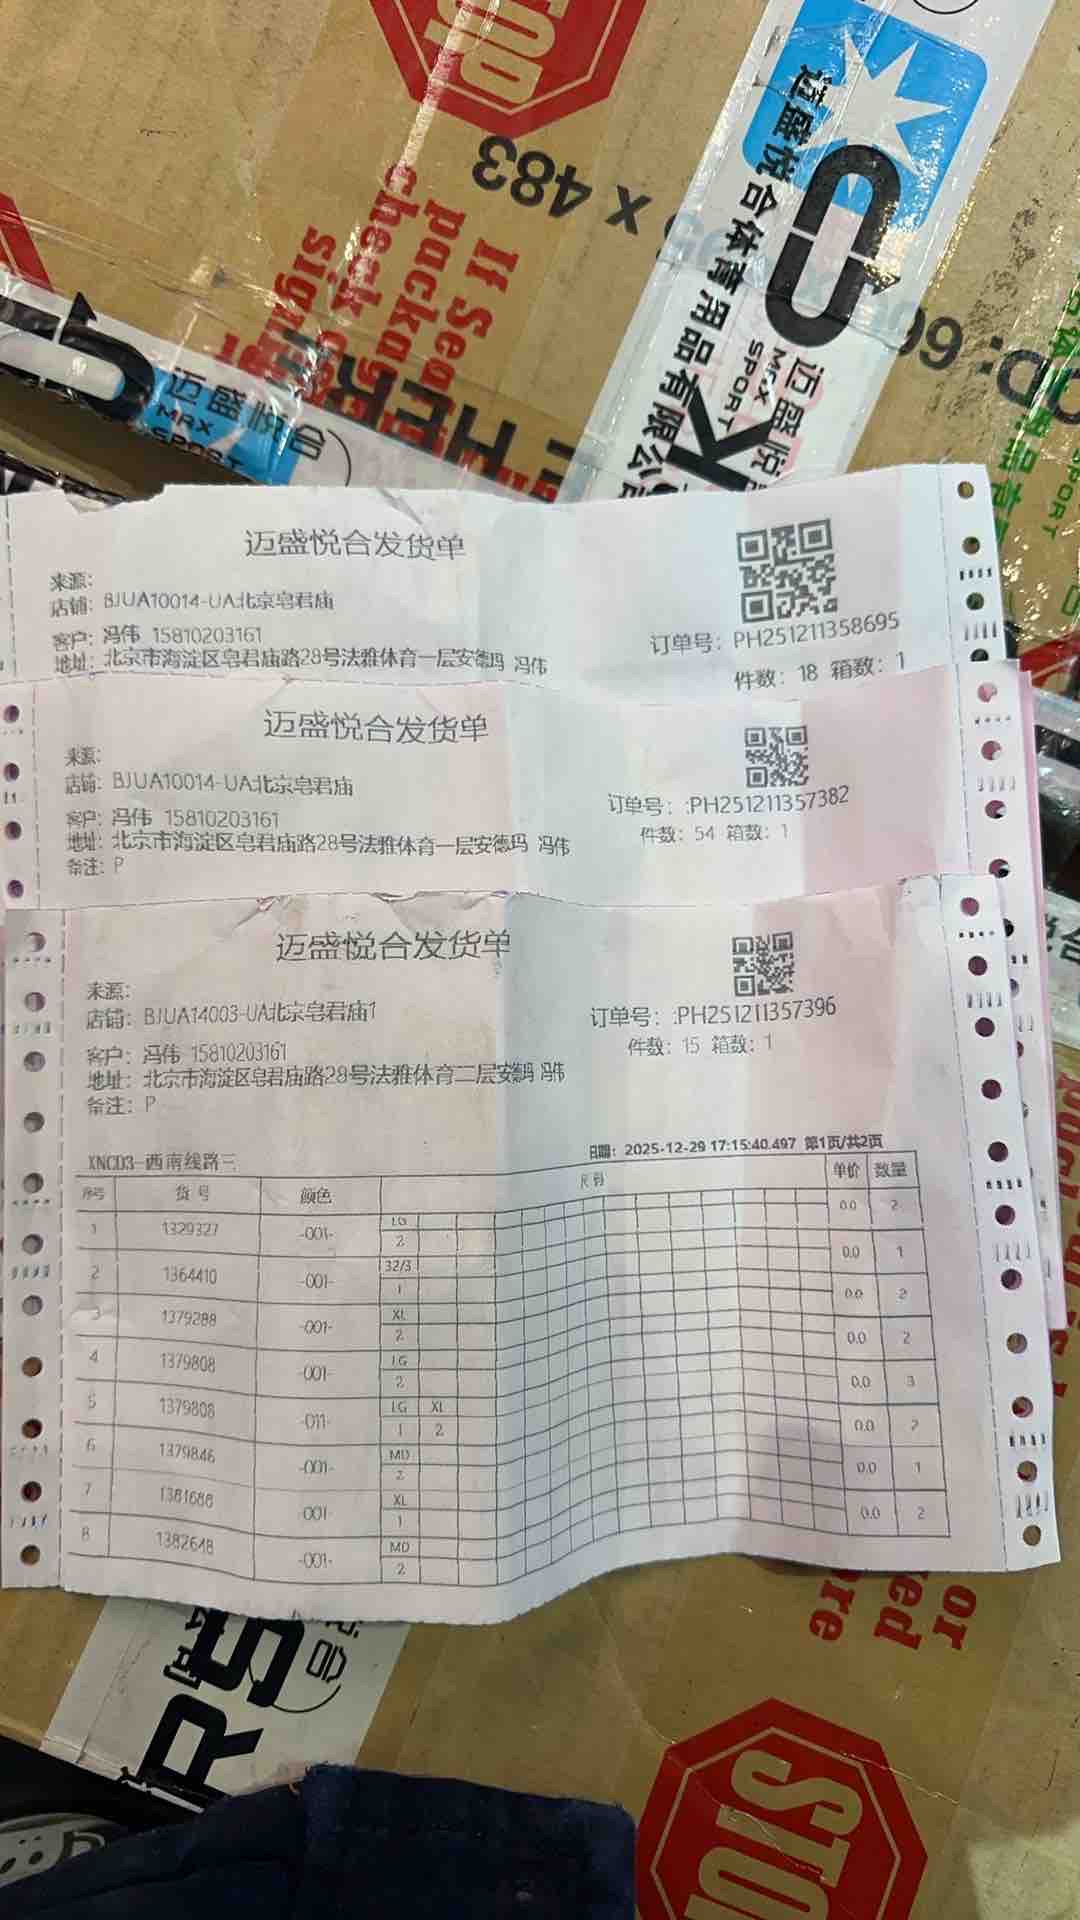 STOP
x 483
If Sea
packag
check
迈盛悦合体育用品有限公司
迈盛悦合
MRX
SPORT
迈盛悦
MRX
SPORT
迈盛悦合发货单
来源:
店铺: BJUA10014-UA北京皂君庙
客户: 冯伟 15810203161
地址: 北京市海淀区皂君庙路28号法雅体育一层安德玛 冯伟
订单号: PH251211358695
件数: 18 箱数: 1
迈盛悦合发货单
来源:
店铺: BJUA10014-UA北京皂君庙
客户: 冯伟 15810203161
地址: 北京市海淀区皂君庙路28号法雅体育一层安德玛 冯伟
备注: P
订单号: :PH251211357382
件数: 54 箱数: 1
迈盛悦合发货单
来源:
店铺: BJUA14003-UA北京皂君庙1
客户: 冯伟 15810203161
地址: 北京市海淀区皂君庙路28号法雅体育二层安德玛 冯伟
备注: P
订单号: :PH251211357396
件数: 15 箱数: 1
XNCD3-西南线路三
日期: 2025-12-29 17:15:40.497 第1页/共2页
序号 货号 颜色 尺码 单价 数量
1 1329327 -001- LG 2 0.0 2
2 1364410 -001- 32/3 1 0.0 1
3 1379288 -001- XL 2 0.0 2
4 1379808 -001- LG 2 0.0 2
5 1379808 -011- LG XL 1 2 0.0 3
6 1379846 -001- MD 2 0.0 2
7 1381688 -001- XL 1 0.0 1
8 1382648 -001- MD 2 0.0 2
or
ved
ore
STOP